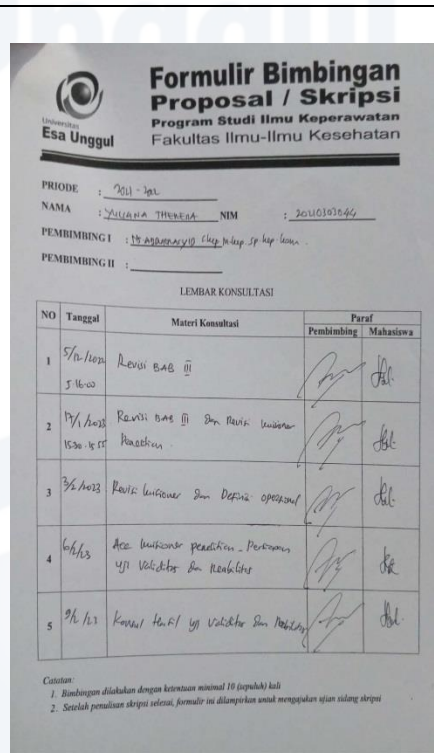 Universitas
Esa Unggul
Formulir Bimbingan
Proposal / Skripsi
Program Studi Ilmu Keperawatan
Fakultas Ilmu-Ilmu Kesehatan
PRIODE :
NAMA : YULIANA THERESIA NIM : 20210303044
PEMBIMBING I :
PEMBIMBING II :
LEMBAR KONSULTASI
NO Tanggal Materi Konsultasi Paraf
Pembimbing Mahasiswa
1 5/12/2022 Revisi BAB III
2 17/1/2023 Revisi BAB III Dan Revisi kuisioner
15.30 - 15.55 Penelitian
3 3/2/2023 Revisi kuisioner Dan Definisi operasional
4 6/2/23 Acc kuisioner penelitian
uji Validitas dan Reabilitas
5 9/2/23 Konsul Hasil uji Validitas Dan Reabilitas
Catatan:
1. Bimbingan dilakukan dengan ketentuan minimal 10 (sepuluh) kali
2. Setelah penulisan skripsi selesai, formulir ini dilampirkan untuk mengajukan ujian sidang skripsi